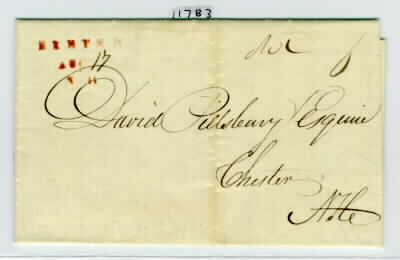 1783
EXETER
AUG 17
N H
David Pillsbury Esquire
Chester
N.H.